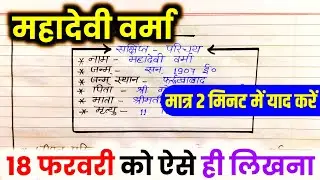 महादेवी वर्मा
संक्षिप्त - परिचय
* नाम - महादेवी वर्मा
* जन्म - सन् 1907 ई०
* जन्म स्थान - फर्रुखाबाद
* पिता - श्री
* माता - श्रीमती
* मृत्यु - 11
मात्र 2 मिनट में याद करें
18 फरवरी को ऐसे ही लिखना